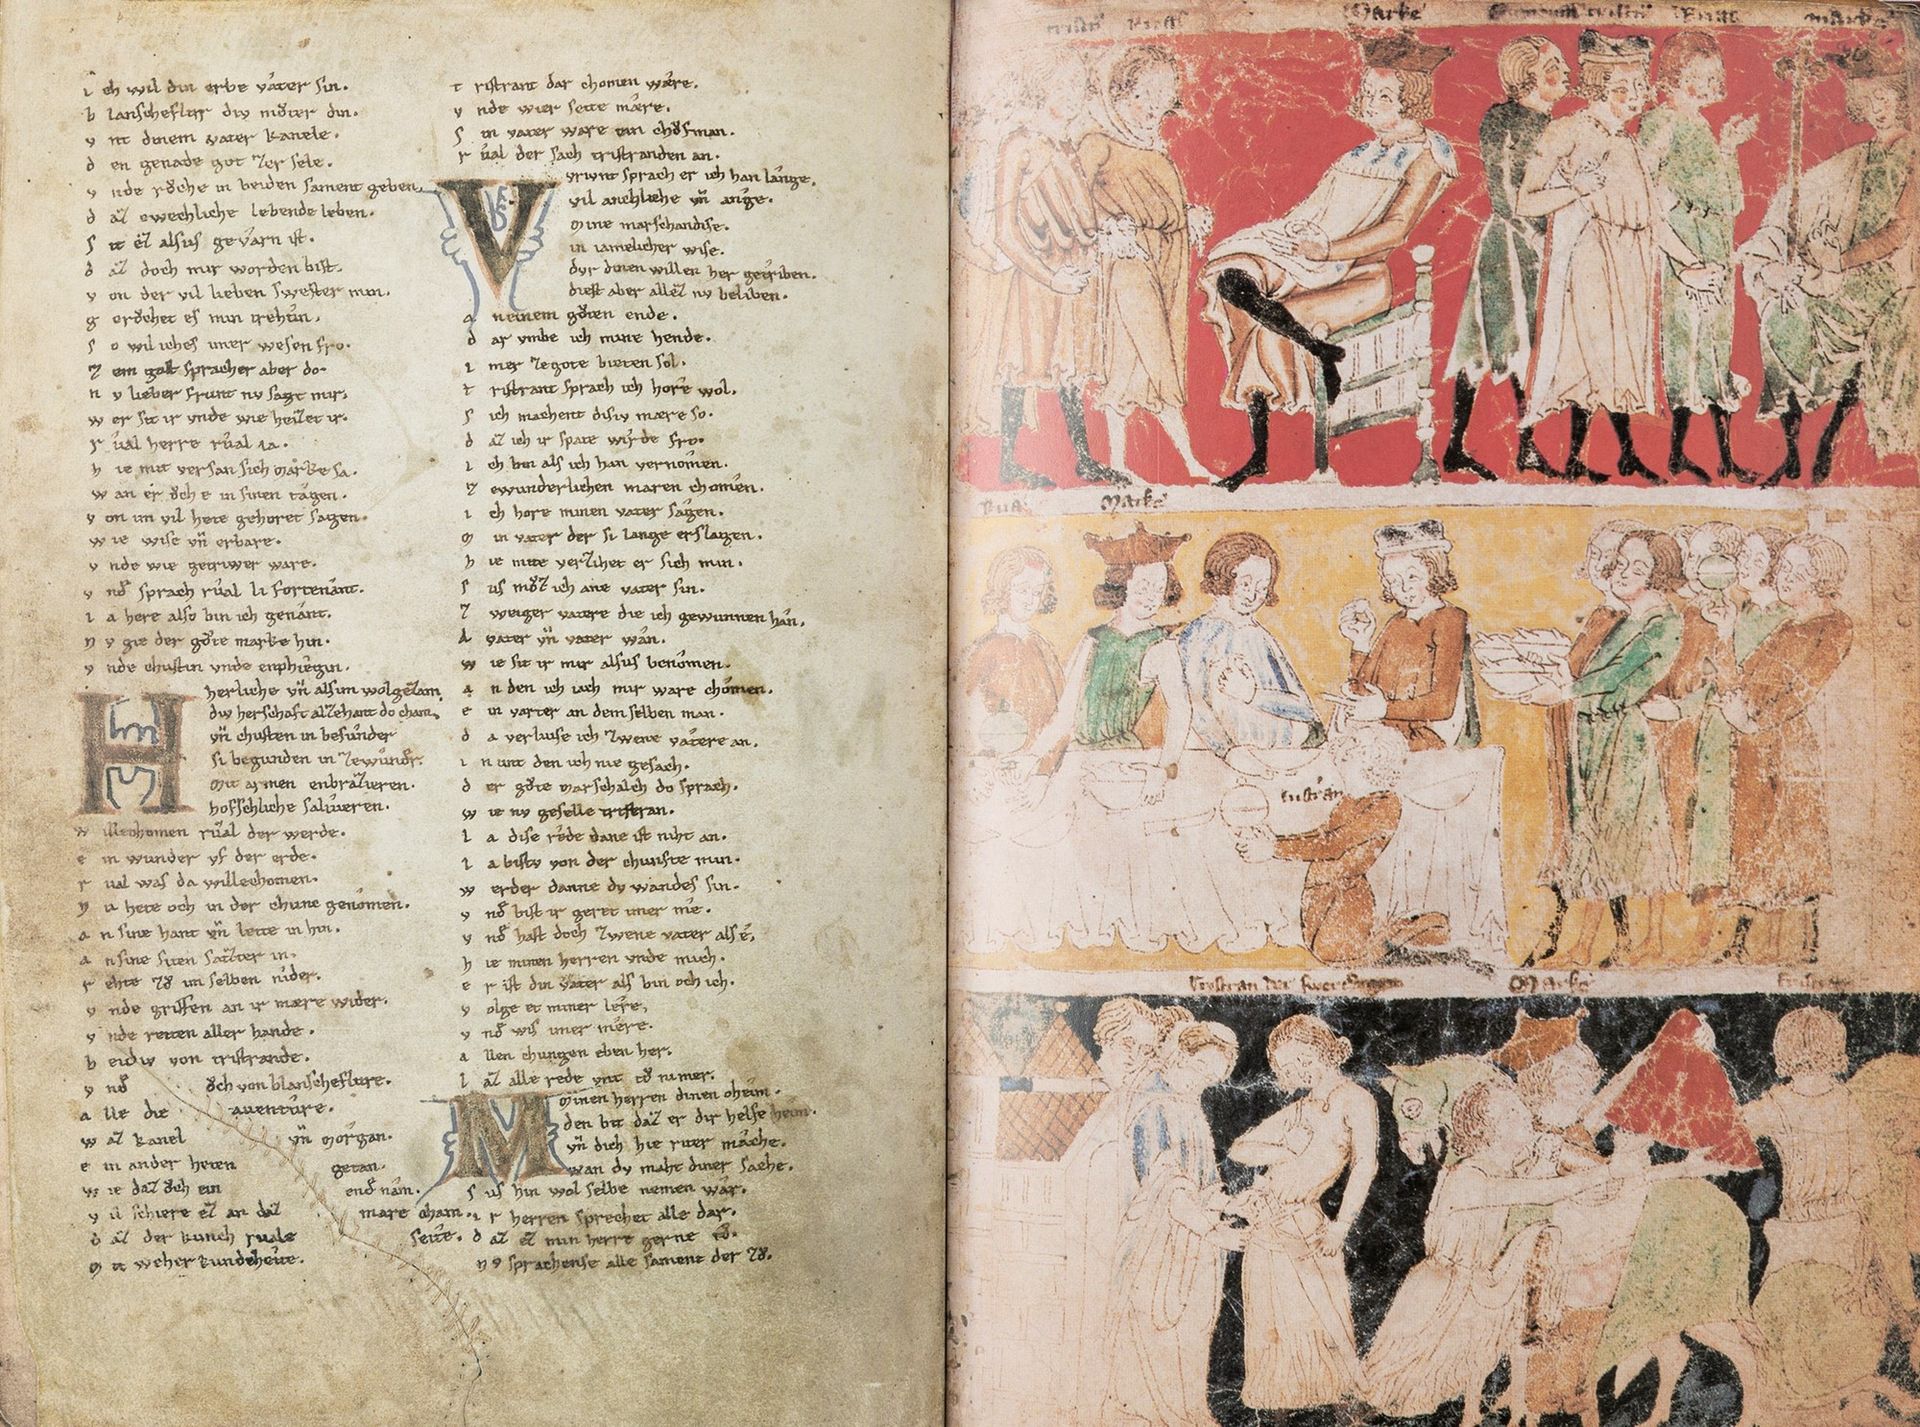 i ch wil din erbe vater sin.
b lanscheflur div můter din.
v nt dinem vater kanele.
d en genade got zer sele.
v nde růche in beiden sament geben.
d az ewechliche lebende leben.
s it ez alsus gevarn ist.
d az doch mir worden bist.
v on der vil lieben swester min.
g erůchet es min trehtin.
s o wil iches imer wesen fro.
z em gast sprach er aber do.
n v lieber frunt nv sagt mir.
w er sit ir vnde wie heizet ir.
r ual herre rual ia.
h ie mit versan sich marke sa.
w an er och e in sinen tagen.
v on im vil hete gehoret sagen.
w ie wise vn erbare.
v nde wie getriwer ware.
v nd sprach rual li fortenant.
i a here also bin ich genant.
n v gie der gůte marke hin.
v nde chustin vnde enphiegin.
H herliche vn als im wol gezam.
div herschaft alzehant do cham.
vn chusten in besunder
si begunden in zewundr.
mit armen enbrazieren.
hofschliche saluieren.
w illechomen rual der werde.
e in wunder vf der erde.
r ual was da willechomen.
m in hete och in der chunc genomen.
a n sine hant vn leite in hin.
a n sine siten sazter in.
r ehte zů im selben nider.
v nde griffen an ir mære wider.
v nde retten aller hande.
b eidiv von tristrande.
v nd och von blanscheflure.
a lle die auenture.
w az kanel vn morgan.
e in ander heten getan.
w ie daz och ein end nam.
v il schiere ez an daz mare cham.
d az der kunich ruale seite.
m it welher kundcheite.
t ristrant dar chomen wære.
v nde wier seite mære.
s in vater ware ein chofman.
r ual der sach tristranden an.
V vriunt sprach er ich han lange.
vil anchliche vn ange.
mine marschandise.
in iamelicher wise.
dvr dinen willen her getriben.
diest aber allez nv beliben.
a n einem gůten ende.
d ar vmbe ich mine hende.
i mer ze gote bieten sol.
t ristrant sprach ich hore wol.
s ich machent disiv mære so.
d az ich ir spate wirde fro.
i ch bin als ich han vernomen.
z ewunderlichen maren chomen.
i ch hore minen vater sagen.
m in vater der si lange erslagen.
h ie mite verzihet er sich min.
s us můz ich ane vater sin.
z weiger vatere die ich gewunnen han.
A vater vn vater wan.
w ie sit ir mir alsus benomen.
a n den ich iach mir ware chomen.
e in vater an dem selben man.
d a verliuse ich zwene vatere an.
i n unt den ich nie gesach.
d er gůte marschalch do sprach.
w ie nv geselle tristran.
l a dise rede dane ist niht an.
i a bistv von der chunfte min.
w erder danne dv wandes sin.
v nd bist ir geret imer me.
v nd hast doch zwene vater als e.
h ie minen herren vnde mich.
e r ist din vater als bin och ich.
v olge et miner lere.
v nd wis imer mere.
a llen chungen eben her.
l az alle rede vnt tů nimer.
M minen herren dinen oheim.
den bit daz er dir helfe heim.
vn dich hie riter mache.
wan dv maht diner sache.
s us hin wol selbe nemen war.
i r herren sprechet alle dar.
d az ez min herre gerne tů.
n v sprachense alle sament der zů.
Marke
Rual
marke
Rual
Marke
tristran
Marke